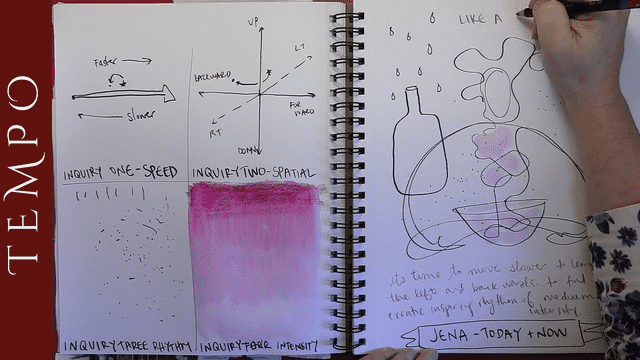 TEMPO
Faster
slower
INQUIRY ONE-SPEED
UP
LT
BACKWARD
FOR
WARD
RT
DOWN
INQUIRY TWO-SPATIAL
INQUIRY THREE RHYTHM
INQUIRY FOUR INTENSITY
LIKE A
its time to move slower + lean
the left and backwards. to find
erratic inspiring rhythm of medium
intensity
JENA - TODAY + NOW